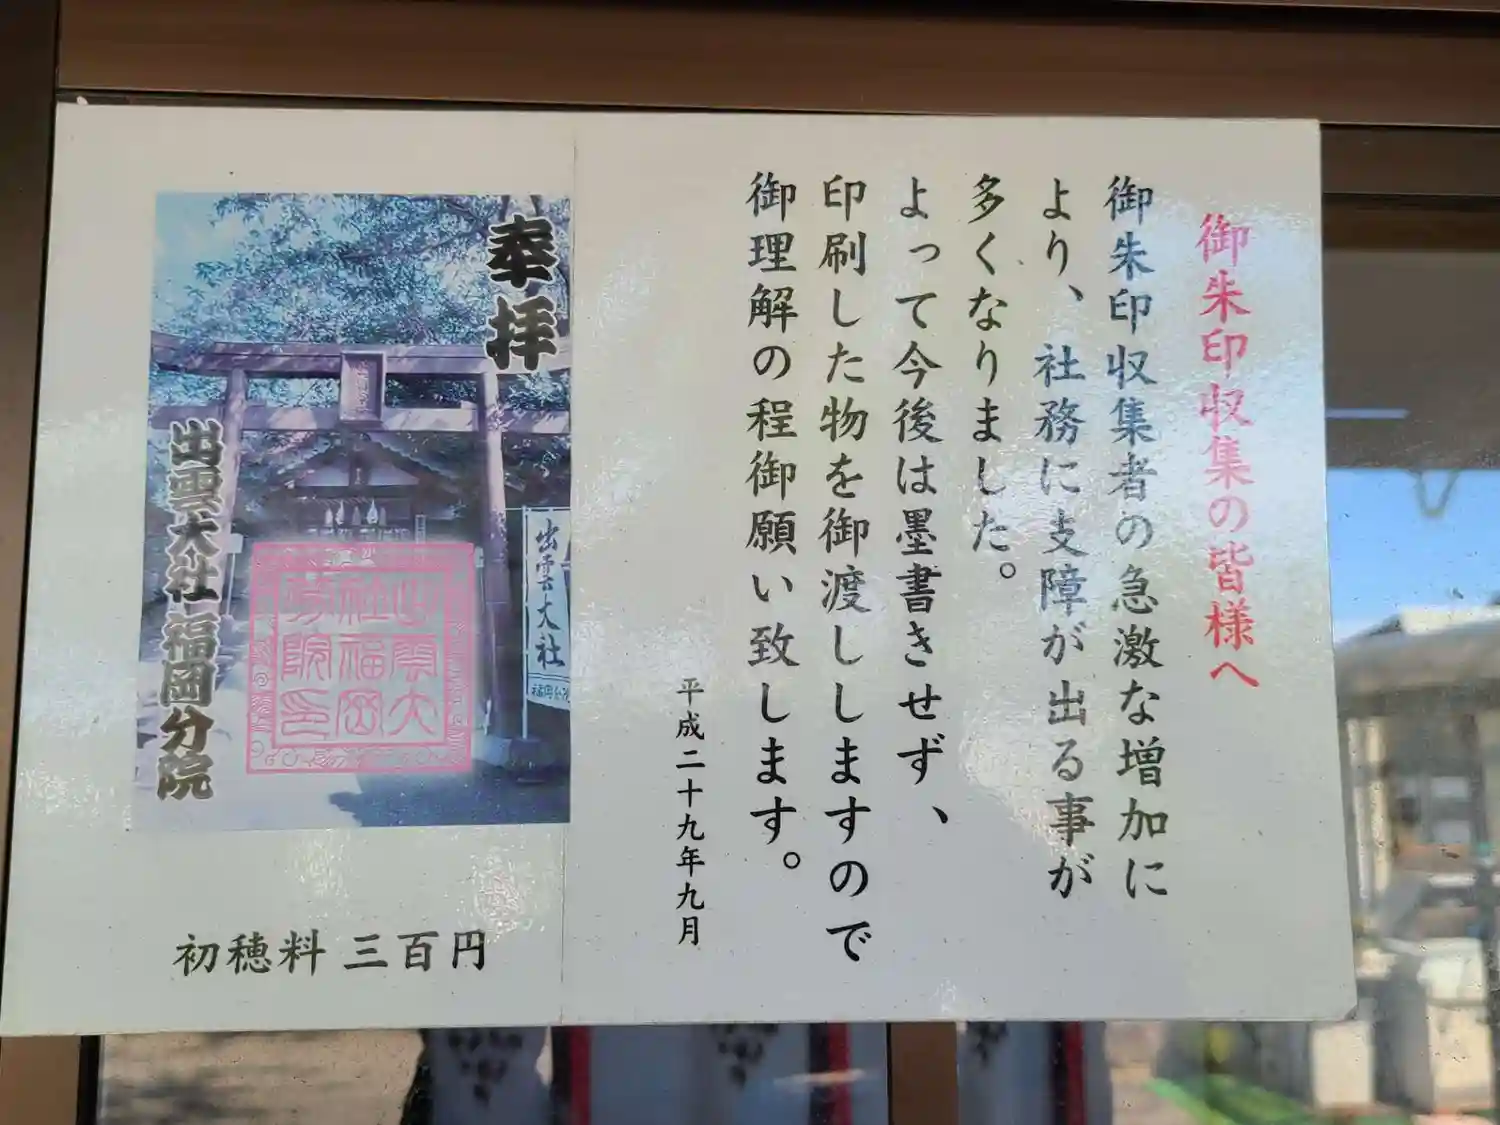 御朱印収集の皆様へ
御朱印収集者の急激な増加に
より、社務に支障が出る事が
多くなりました。
よって今後は墨書きせず、
印刷した物を御渡ししますので
御理解の程御願い致します。
平成二十九年九月
奉拝
出雲大社
福岡分
出雲大社福岡分院印
出雲大社 福岡分院
初穂料 三百円